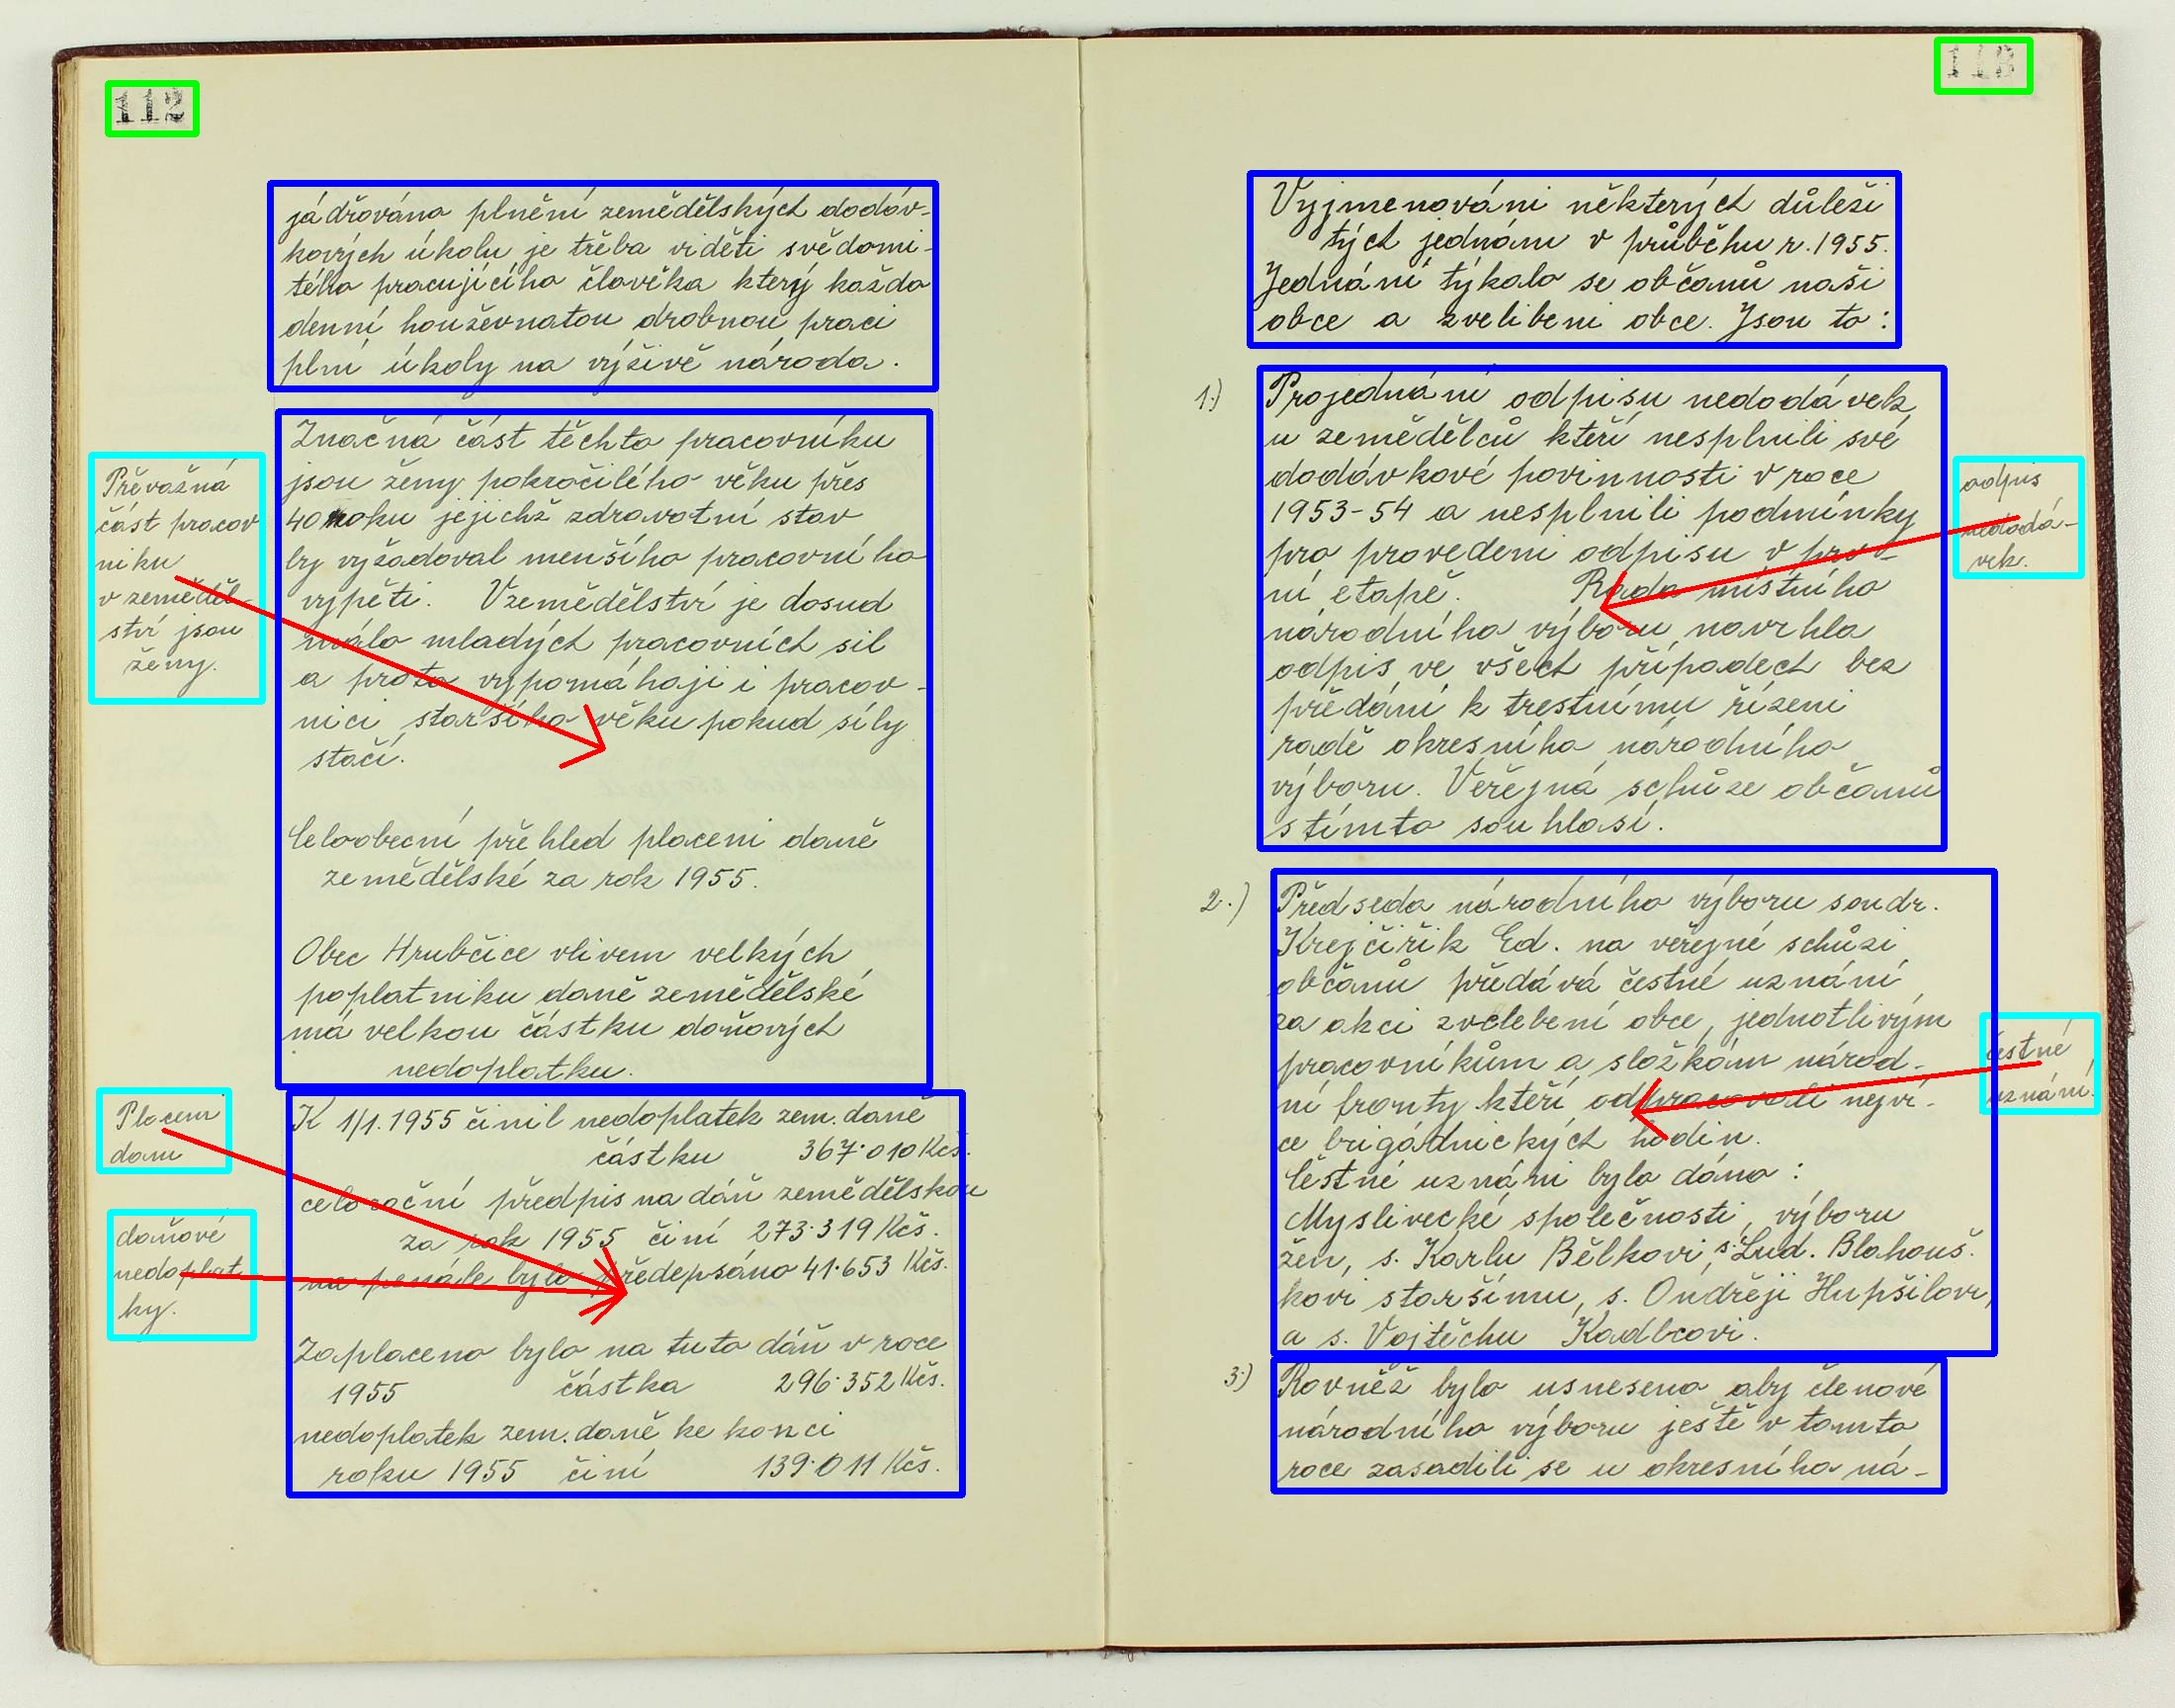 112
jádřována plnění zemědělských dodáv-
kových úkolu je třeba viděti svědomi-
tého pracujícího člověka který každo
denní houževnatou drobnou praci
plní úkoly na výživě národa.
Převažná
část pracov
niku
v zeměděl-
ství jsou
ženy.
Značná část těchto pracovníku
jsou ženy pokročilého věku přes
40 roku jejichž zdravotní stav
by vyžadoval menšího pracovního
vypěti. Vzemědělství je dosud
málo mladých pracovních sil
a proto vypomáhaji i pracov-
nici staršího věku pokud síly
stačí.
Celoobecní přehled placeni daně
zemědělské za rok 1955.
Obec Hrubčice vlivem velkých
poplatniku daně zemědělské
má velkou částku daňových
nedoplatku.
Placeni
dani
daňové
nedoplat
ky.
K 1/1. 1955 činil nedoplatek zem. daně
částku 367·010 Kčs.
celoroční předpis na dáň zemědělskou
za rok 1955 činí 273·319 Kčs.
na penále bylo předepsáno 41·653 Kčs.
Zaplaceno bylo na tuto dáň v roce
1955 částka 296·352 Kčs.
nedoplatek zem. daně ke konci
roku 1955 činí 139·011 Kčs.
113
Vyjmenováni některých důleži
tých jednáni v průběhu r. 1955.
Jednání týkalo se občanů naši
obce a zvelibeni obce. Jsou to:
1.)
Projednání odpisu nedodávek
u zemědělců kteří nesplnili své
dodávkové povinnosti v roce
1953-54 a nesplnili podmínky
pro provedeni odpisu v prv-
ní etapě. Rada místního
národního výboru navrhla
odpis ve všech případech bez
předání k trestnímu řízeni
radě okresního národního
výboru. Veřejná schůze občanů
stímto souhlasí.
odpis
nedodá-
vek.
2.)
Předseda národního výboru soudr.
Krejčiřik Ed. na veřejné schůzi
občanů předává čestné uznání
za akci zvelebení obce, jednotlivým
pracovníkům a složkám národ-
ní fronty kteří odpracovali nejví-
ce brigádnických hodin.
Čestné uznáni bylo dáno:
Myslivecké společnosti, výboru
žen, s. Karlu Bělkovi, s. Lud. Blahouš-
kovi staršímu, s. Ondřeji Hupšilovi,
a s. Vojtěchu Kadlcovi.
čestné
uznání.
3.)
Rovněž bylo usneseno aby členové
národního výboru ještě v tomto
roce zasadili se u okresního ná-